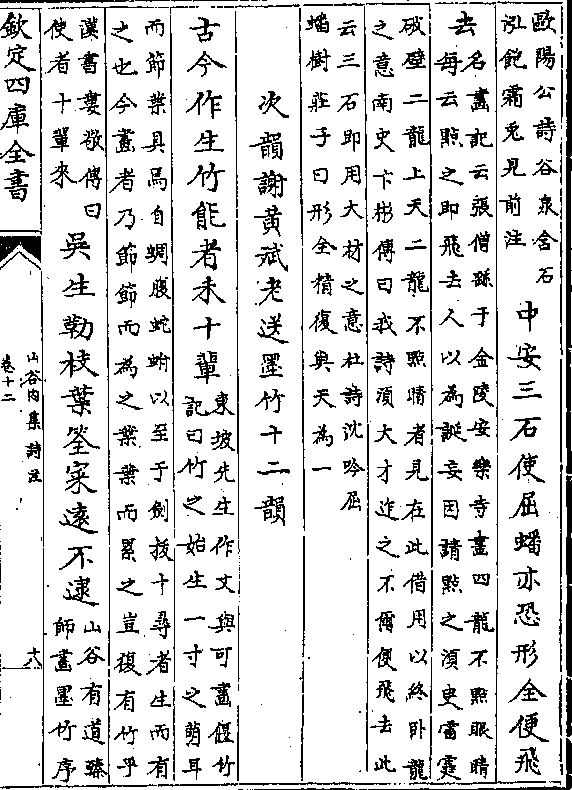 歐陽公詩谷泉含石
泓飽霜兎見前注
中安三石使屈蟠亦恐形全便飛
去
名畫記云張僧繇于金陵安樂寺畫四龍不點眼睛
每云點之即飛去人以為誕妄因請點之湏臾雷霆
破壁二龍上天二龍不點睛者見在此借用以終卧龍
之意南史卞彬傳曰我詩湏大才迮之不爾便飛去此
云三石即用大材之意杜詩沈吟屈
蟠樹莊子曰形全精復與天為一
次韻謝黄斌老送墨竹十二韻
古今作生竹能者未十輩
東坡先生作文與可畫偃竹
記曰竹之始生一寸之萌耳
而節葉具焉自蜩腹蛇蚹以至于劍拔十尋者生而有
之也今畫者乃節節而為之葉葉而累之豈復有竹乎
漢書婁敬傳曰
使者十輩來
吳生勒枝葉筌寀遠不逮
山谷有道臻
師畫墨竹序
欽定四庫全書
山谷内集詩注
卷十二
十八